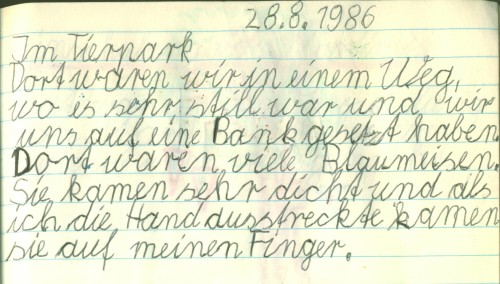 28.8.1986
Im Tierpark
Dort waren wir in einem Weg,
wo es sehr still war und wir
uns auf eine Bank gesetzt haben.
Dort waren viele Blaumeisen.
Sie kamen sehr dicht und als
ich die Hand ausstreckte kamen
sie auf meinen Finger.